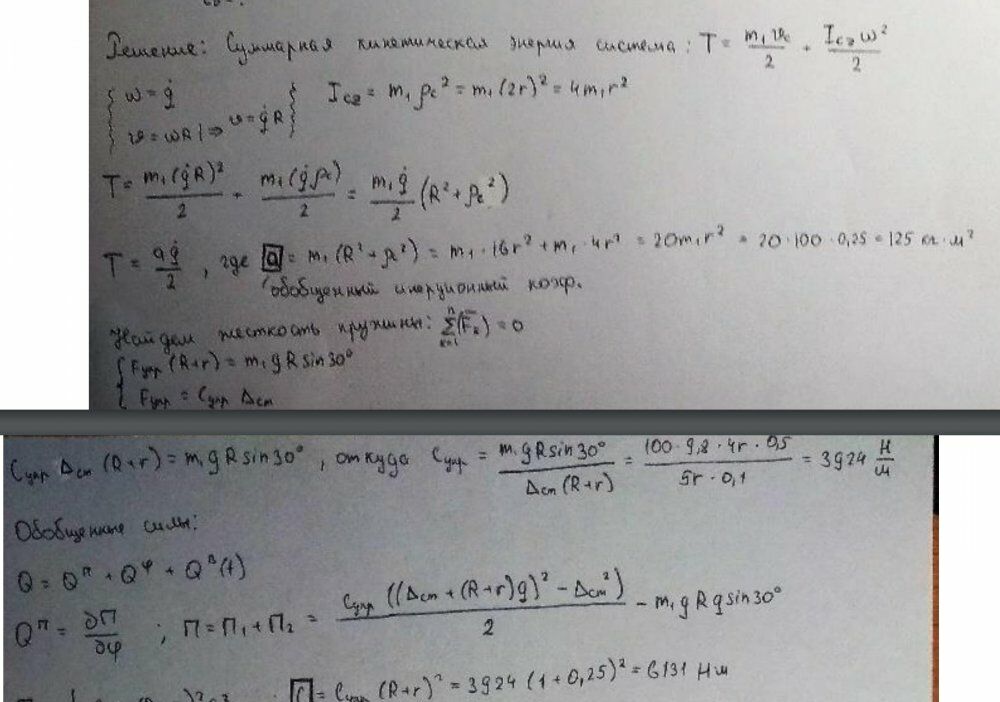 Решение: Суммарная кинетическая энергия система: T = m₁υc/2 + Icz ω²/2
{ ω = q̇
υ = ωR | ⇒ υ = q̇R } Icz = m₁ρc² = m₁(2r)² = 4m₁r²
T = m₁(q̇R)²/2 + m₁(q̇ρc)/2 = m₁q̇/2 (R² + ρc²)
T = aq̇/2 , где a = m₁(R² + ρc²) = m₁·16r² + m₁·4r² = 20m₁r² = 20·100·0,25 = 125 кг·м²
обобщенный инерционный коэф.
Найдем жесткость пружины: Σ(F̅k) = 0
n
k=1
{ Fупр(R+r) = m₁gRsin30°
Fупр = Cупр Δст
Cупр Δст (R+r) = m₁gRsin30° , откуда Cупр = m₁gRsin30°/Δст(R+r) = 100·9,8·4r·0,5/5r·0,1 = 3924 Н/м
Обобщенные силы:
Q = Qᴨ + Qφ + Qᴮ(t)
Qᴨ = ∂П/∂φ ; П = П₁ + П₂ = Cупр((Δст + (R+r)q)² − Δст²)/2 − m₁gRqsin30°
= Cупр (R+r)² = 3924 (1+0,25)² = 6131 Нм